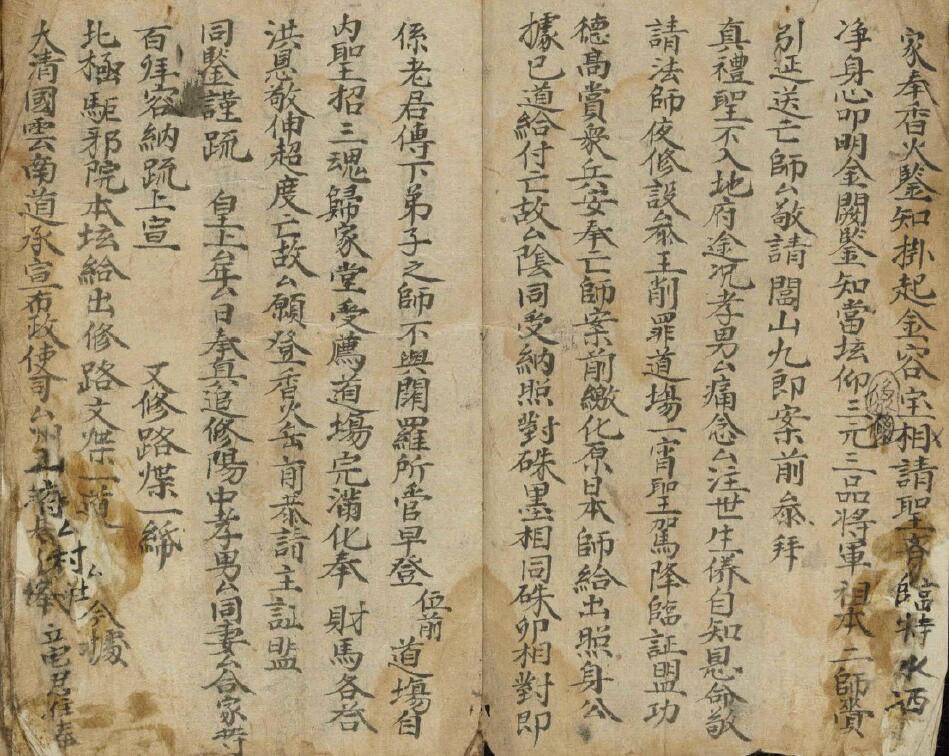 家奉香火鑒知掛起金容宗相請聖喜臨特水洒
净身心叩明金闕鑒知當坛仰三元三品將軍祖本二師賫
引迋送亡師厶敬請閭山九郎案前叅拜
真禮聖不入地府途况孝男厶痛念厶注世生侪自知恩命敬
請法師夜修設叅王削罪道塲一宵聖駕降臨証盟功
德高賞衆兵安奉亡師案前繳化原日本師給出照身公
據已道給付亡故厶陰同受納照對硃墨相同硃卯相對即
係老君傳下弟子之師不與閻羅所管早登位前道塲自
内聖招三魂歸家堂受薦道塲完滿化奉財馬各荅
洪恩敬伸超度亡故厶願登香火岳前恭請主証盟
同鑒謹疏 皇上厶年厶月厶日奉真追修陽中孝男厶同妻厶合家等
百拜容納疏上宣 又修路牒一縍
北極駈邪院本坛給出修路文牒一道 今據
大清國雲南道承宣布政使司厶州